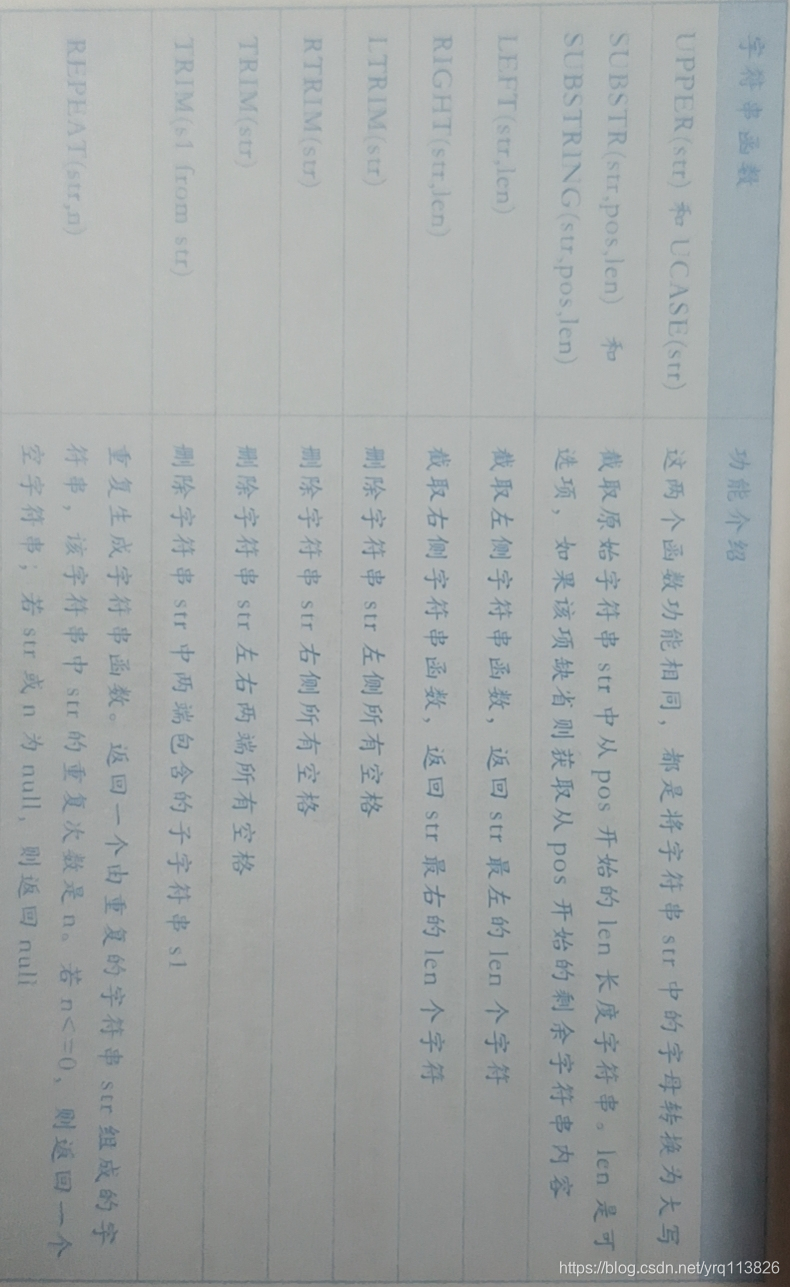 字符串函数
功能介绍
UPPER(str) 和 UCASE(str)
这两个函数功能相同，都是将字符串 str 中的字母转换为大写
SUBSTR(str,pos,len) 和
SUBSTRING(str,pos,len)
截取原始字符串 str 中从 pos 开始的 len 长度字符串。len 是可
选项，如果该项缺省则获取从 pos 开始的剩余字符串内容
LEFT(str,len)
截取左侧字符串函数，返回 str 最左的 len 个字符
RIGHT(str,len)
截取右侧字符串函数，返回 str 最右的 len 个字符
LTRIM(str)
删除字符串 str 左侧所有空格
RTRIM(str)
删除字符串 str 右侧所有空格
TRIM(str)
删除字符串 str 左右两端所有空格
TRIM(s1 from str)
删除字符串 str 中两端包含的子字符串 s1
REPEAT(str,n)
重复生成字符串函数。返回一个由重复的字符串 str 组成的字
符串，该字符串中 str 的重复次数是 n。若 n<=0，则返回一个
空字符串；若 str 或 n 为 null，则返回 null
https://blog.csdn.net/yrq113826